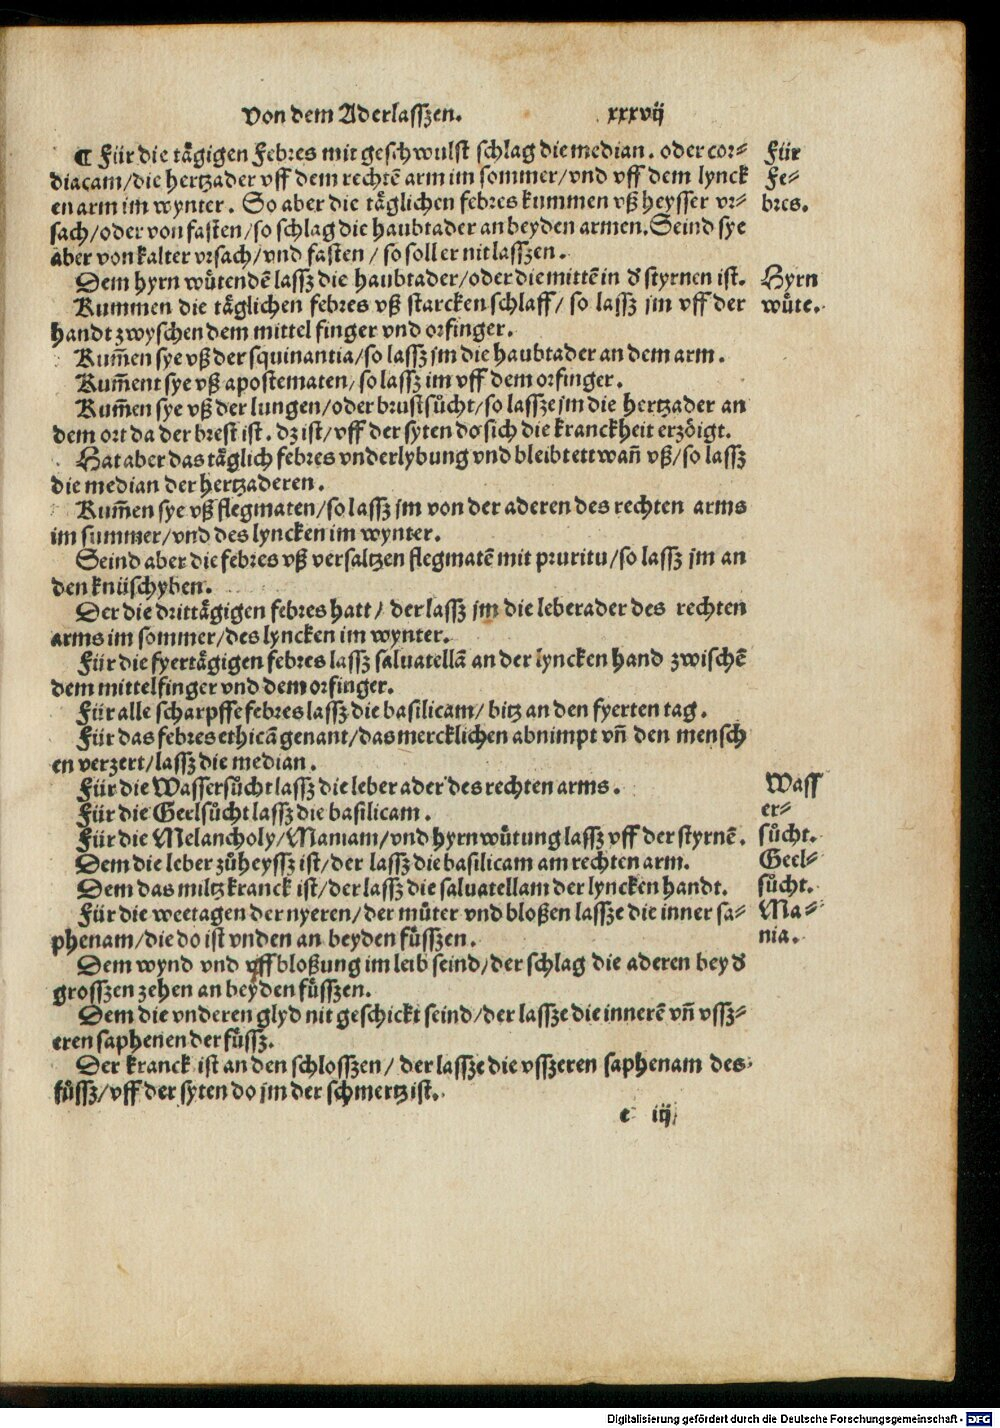 Von dem Aderlasszen. xxxvij
¶ Für die tägigen Febres mit geschwulst schlag die median. oder cor⸗
diacam/die hertzader vff dem rechtē arm im sommer/vnd vff dem lynck
en arm im wynter. So aber die täglichen febres kummen vß heysser vr⸗
sach/oder von fasten/so schlag die haubtader an beyden armen. Seind sye
aber von kalter vrsach/vnd fasten/so soll er nit lasszen.
Für
Fe⸗
bres.
Dem hyrn wůtendē lassz die haubtader/oder die mittē in d' styrnen ist.
Kummen die täglichen febres vß starcken schlaff/so lassz jm vff der
handt zwyschen dem mittel finger vnd orfinger.
Hyrn
wůte.
Kum̄en sye vß der squinantia/so lassz jm die haubtader an dem arm.
Kum̄ent sye vß apostematen/so lassz im vff dem orfinger.
Kum̄en sye vß der lungen/oder brustsůcht/so lassze jm die hertzader an
dem ort da der brest ist. dz ist/vff der syten do sich die kranckheit erzöigt.
Hat aber das täglich febres vnderlybung vnd bleibt ettwan̄ vß/so lassz
die median der hertzaderen.
Kum̄en sye vß flegmaten/so lassz jm von der aderen des rechten arms
im summer/vnd des lyncken im wynter.
Seind aber die febres vß versaltzen flegmatē mit pruritu/so lassz jm an
den knüschyben.
Der die drittägigen febres hatt/der lassz jm die leberader des rechten
arms im sommer/des lyncken im wynter.
Für die fyertägigen febres lassz saluatellā an der lyncken hand zwischē
dem mittelfinger vnd dem orfinger.
Für alle scharpffe febres lassz die basilicam/bitz an den fyerten tag.
Für das febres ethicā genant/das mercklichen abnimpt vn̄ den mensch
en verzert/lassz die median.
Für die Wassersůcht lassz die leber ader des rechten arms.
Für die Geelsůcht lassz die basilicam.
Für die Melancholy/Maniam/vnd hyrnwůtung lassz vff der styrnē.
Dem die leber zů heyssz ist/der lassz die basilicam am rechten arm.
Dem das miltz kranck ist/der lassz die saluatellam der lyncken handt.
Für die weetagen der nyeren/der můter vnd bloßen lassze die inner sa⸗
phenam/die do ist vnden an beyden fůsszen.
Wass
er⸗
sůcht.
Geel⸗
sůcht.
Ma⸗
nia.
Dem wynd vnd vffbloßung im leib seind/der schlag die aderen bey d'
grosszen zehen an beyden fůsszen.
Dem die vnderen glyd nit geschickt seind/der lassze die innerē vn̄ vssz⸗
eren saphenen der fůssz.
Der kranck ist an den schlosszen/der lassze die vsszeren saphenam des
fůssz/vff der syten do jm der schmertz ist.
e iij
Digitalisierung gefördert durch die Deutsche Forschungsgemeinschaft - DFG